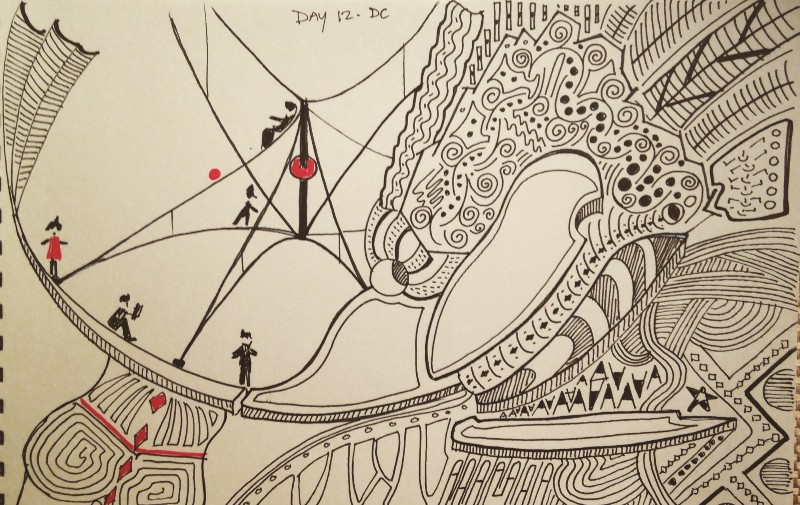 DAY 12 - DC